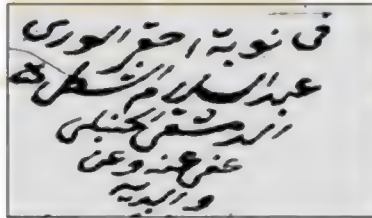 في نوبة احقر الورى
عبد السلام الشطي
الدمشقي الحنبلي
عفي عنه وعن
والديه